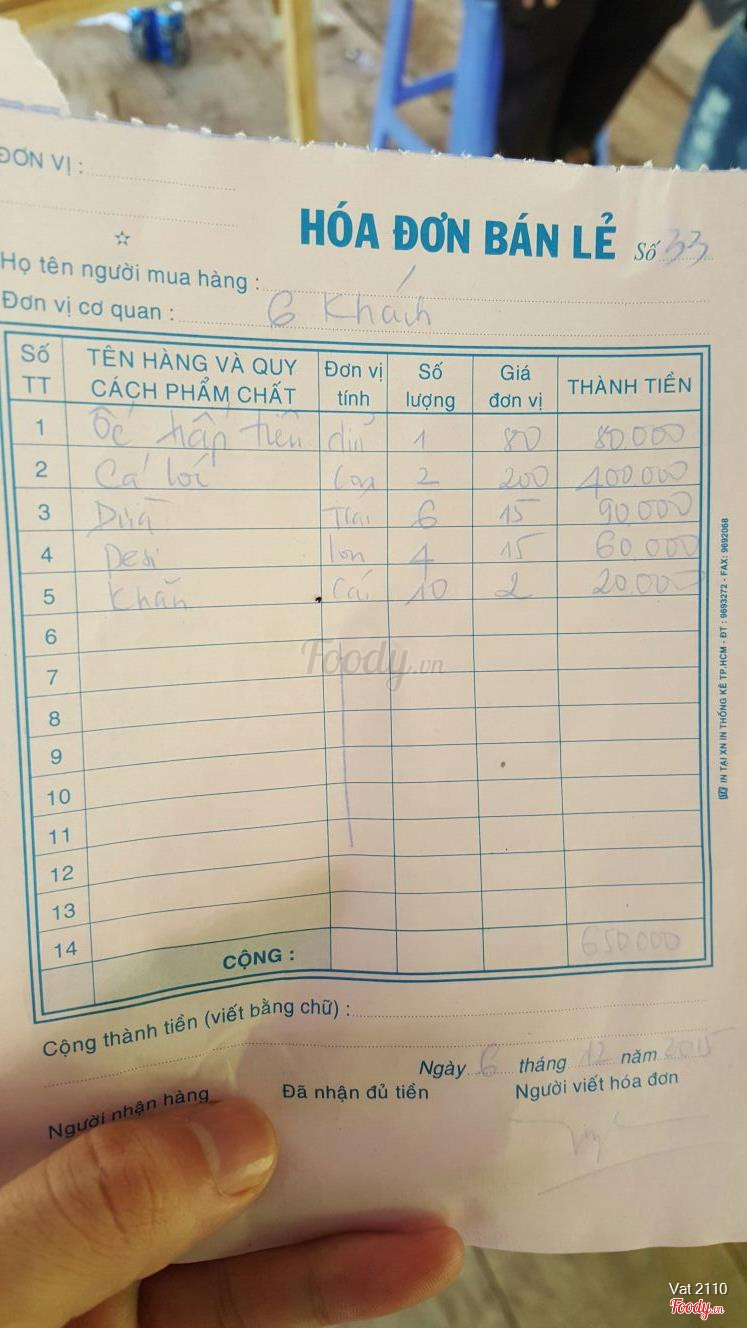 ĐƠN VỊ :
☆
HÓA ĐƠN BÁN LẺ Số 33
Họ tên người mua hàng :
Đơn vị cơ quan : 6 Khách
Số TT TÊN HÀNG VÀ QUY CÁCH PHẨM CHẤT Đơn vị tính Số lượng Giá đơn vị THÀNH TIỀN
1 Ốc hấp tiêu dĩa 1 80 80.000
2 Cá lôi Con 2 200 400.000
3 Dừa Trái 6 15 90.000
4 Pesi lon 4 15 60.000
5 Khăn Cái 10 2 20.000
6
Foody.vn
7
8
9
10
11
12
13
14 650.000
CỘNG :
Cộng thành tiền (viết bằng chữ) :
Ngày 6 tháng 12 năm 2015
Người nhận hàng Đã nhận đủ tiền Người viết hóa đơn
IN TẠI XN IN THỐNG KÊ TP.HCM - ĐT : 9693272 - FAX: 9692068
Vat 2110
Foody.vn